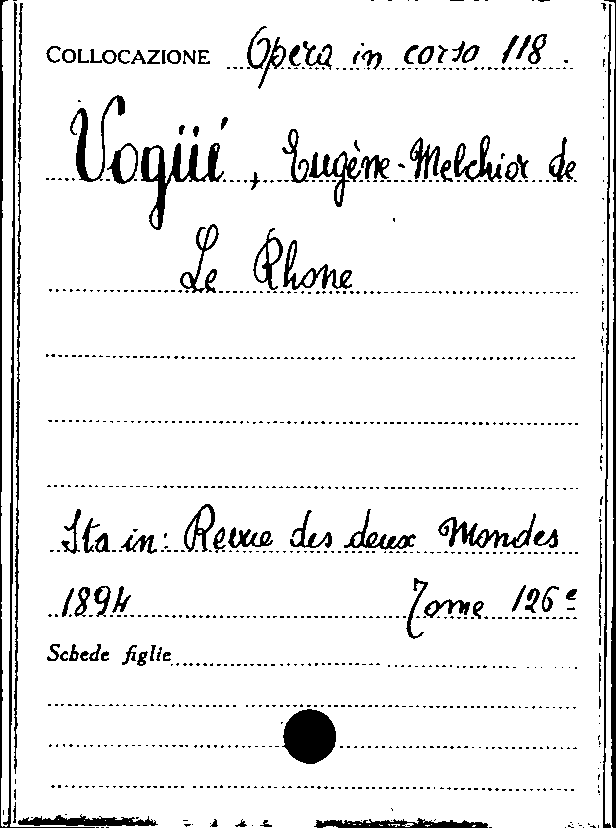 COLLOCAZIONE Opera in corso 118.
Vogüé, Eugène-Melchior de
Le Rhone
Sta in: Revue des deux Mondes
1894 Tome 126e
Schede figlie